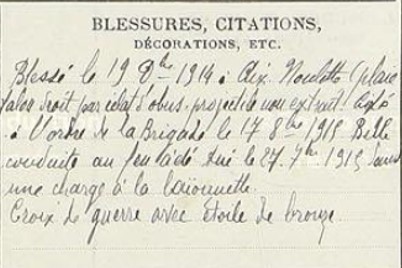 BLESSURES, CITATIONS,
DÉCORATIONS, ETC.
Blessé le 19 8bre 1914 à Aix Noulette (plaie
talon droit par éclat d'obus, projectile non extrait Cité
à l'ordre de la Brigade le 17 8bre 1915 Belle
conduite au feu tué le 27 7bre 1915 dans
une charge à la baïonnette.
Croix de guerre avec étoile de bronze.